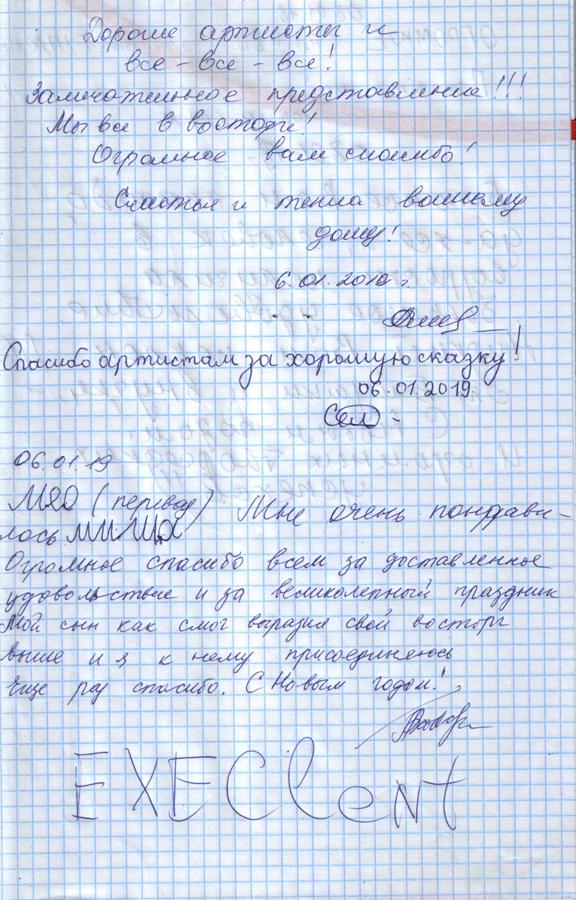 Дорогие артисты и
все - все - все!
Замечательное представление!!!
Мы все в восторге!
Огромное вам спасибо!
Счастья и тепла вашему
дому!
6.01.2010 г.
Спасибо артистам за хорошую сказку!
06.01.2019
06.01.19
МЯО (перевод) Мне очень пондави-
лось МИША
Огромное спасибо всем за доставленное
удовольствие и за великолепный праздник
Мой сын как смог выразил свой восторг
выше и я к нему присоединяюсь
Еще раз спасибо. С Новым годом!
EXEClent